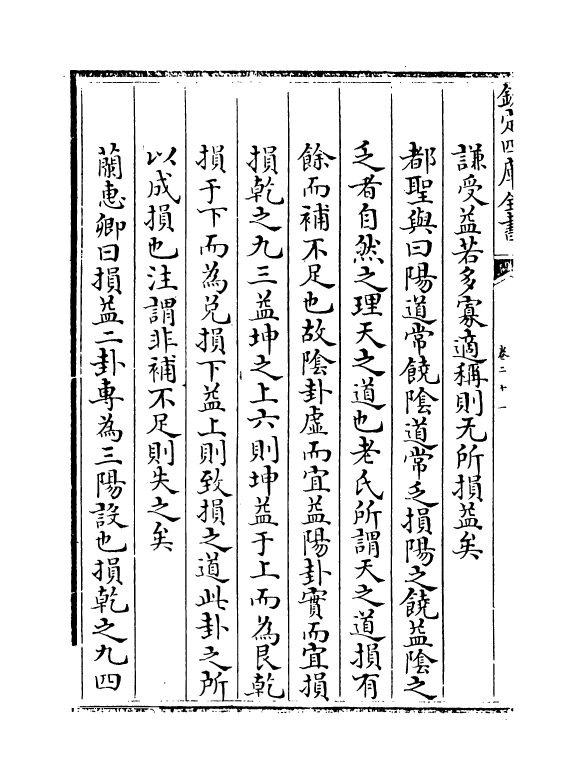 欽定四庫全書
卷二十一
謙受益若多寡適稱則无所損益矣
都聖與曰陽道常饒陰道常乏損陽之饒益陰之
乏者自然之理天之道也老氏所謂天之道損有
餘而補不足也故陰卦虛而宜益陽卦實而宜損
損乾之九三益坤之上六則坤益于上而為艮乾
損于下而為兌損下益上則致損之道此卦之所
以成損也注謂非補不足則失之矣
蘭惠卿曰損益二卦專為三陽設也損乾之九四